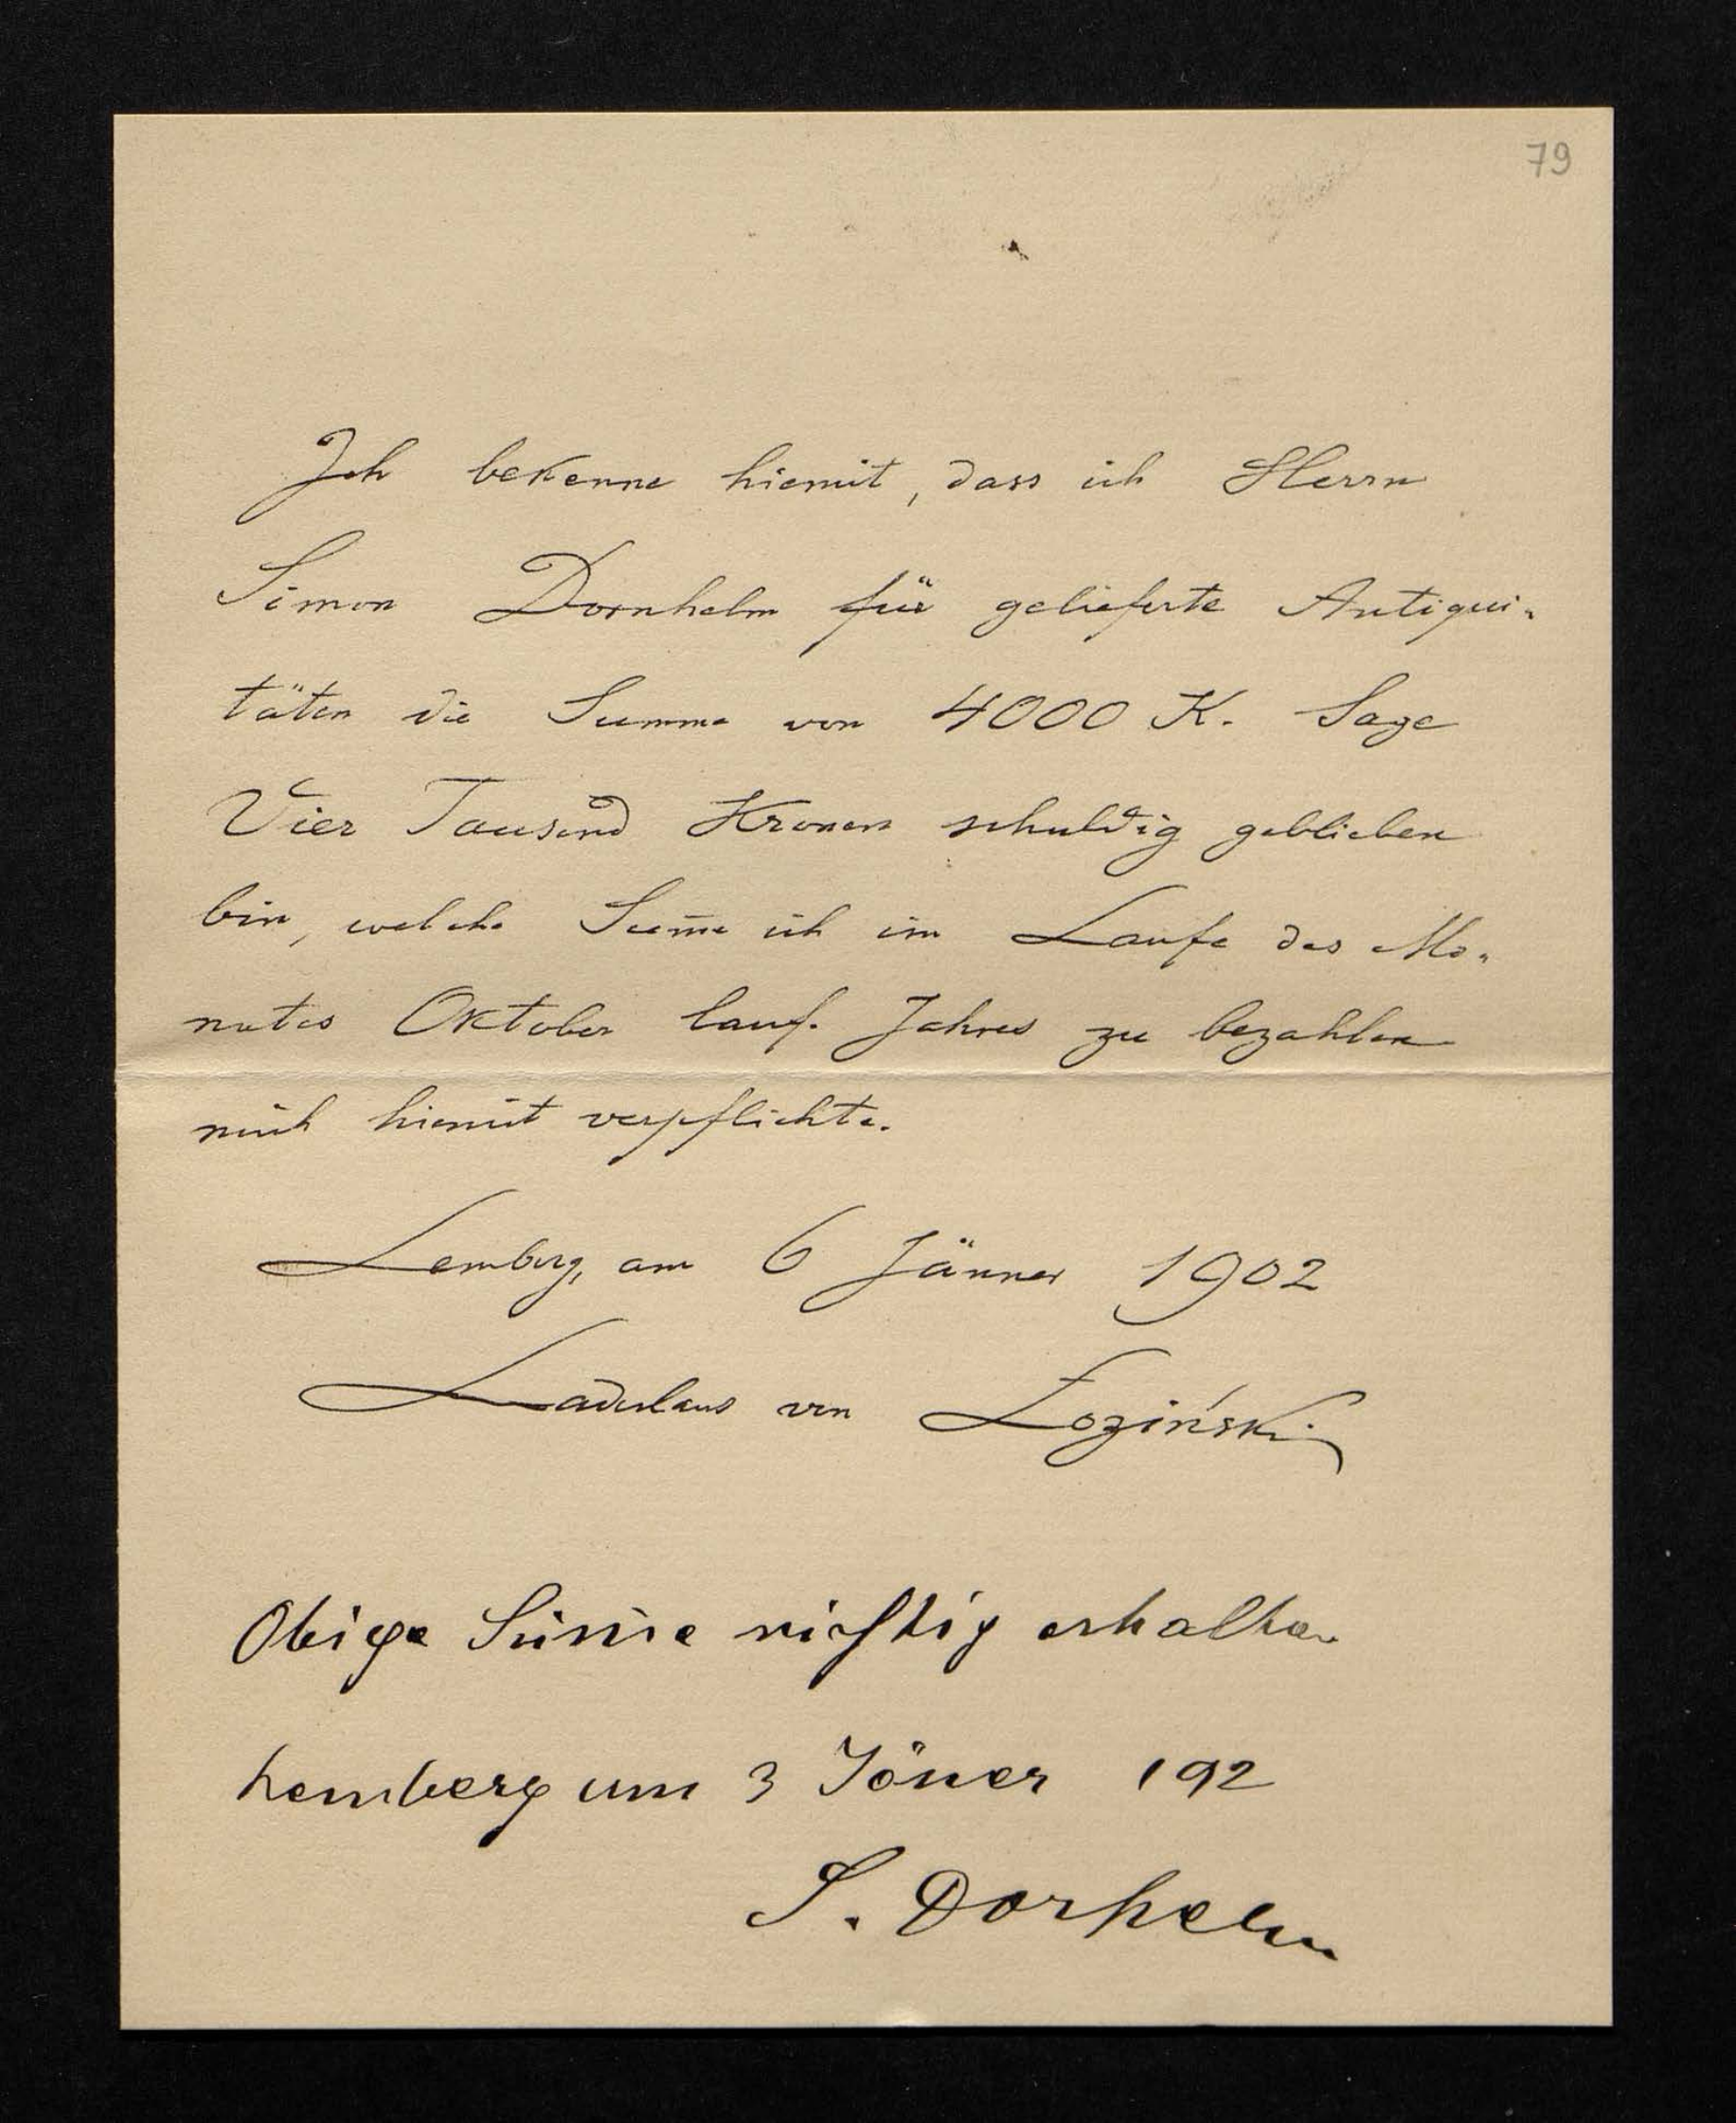 79
Ich bekenne hiemit, dass ich Herrn
Simon Dornhelm für gelieferte Antiqui-
täten die Summe von 4000 K. Sage
Vier Tausend Kronen schuldig geblieben
bin, welche Sum̄e ich im Laufe des Mo-
nates Oktober lauf. Jahres zu bezahlen
mich hiemit verpflichte.
Lemberg, am 6 Jänner 1902
Ladislaus von Łoziński
Obige Sum̄e richtig erhalten
Lemberg um 3 Jöner 192
S. Dorhelm